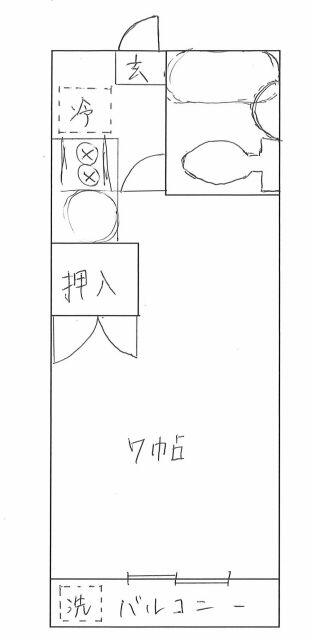 玄
冷
押入
7帖
洗
バルコニー